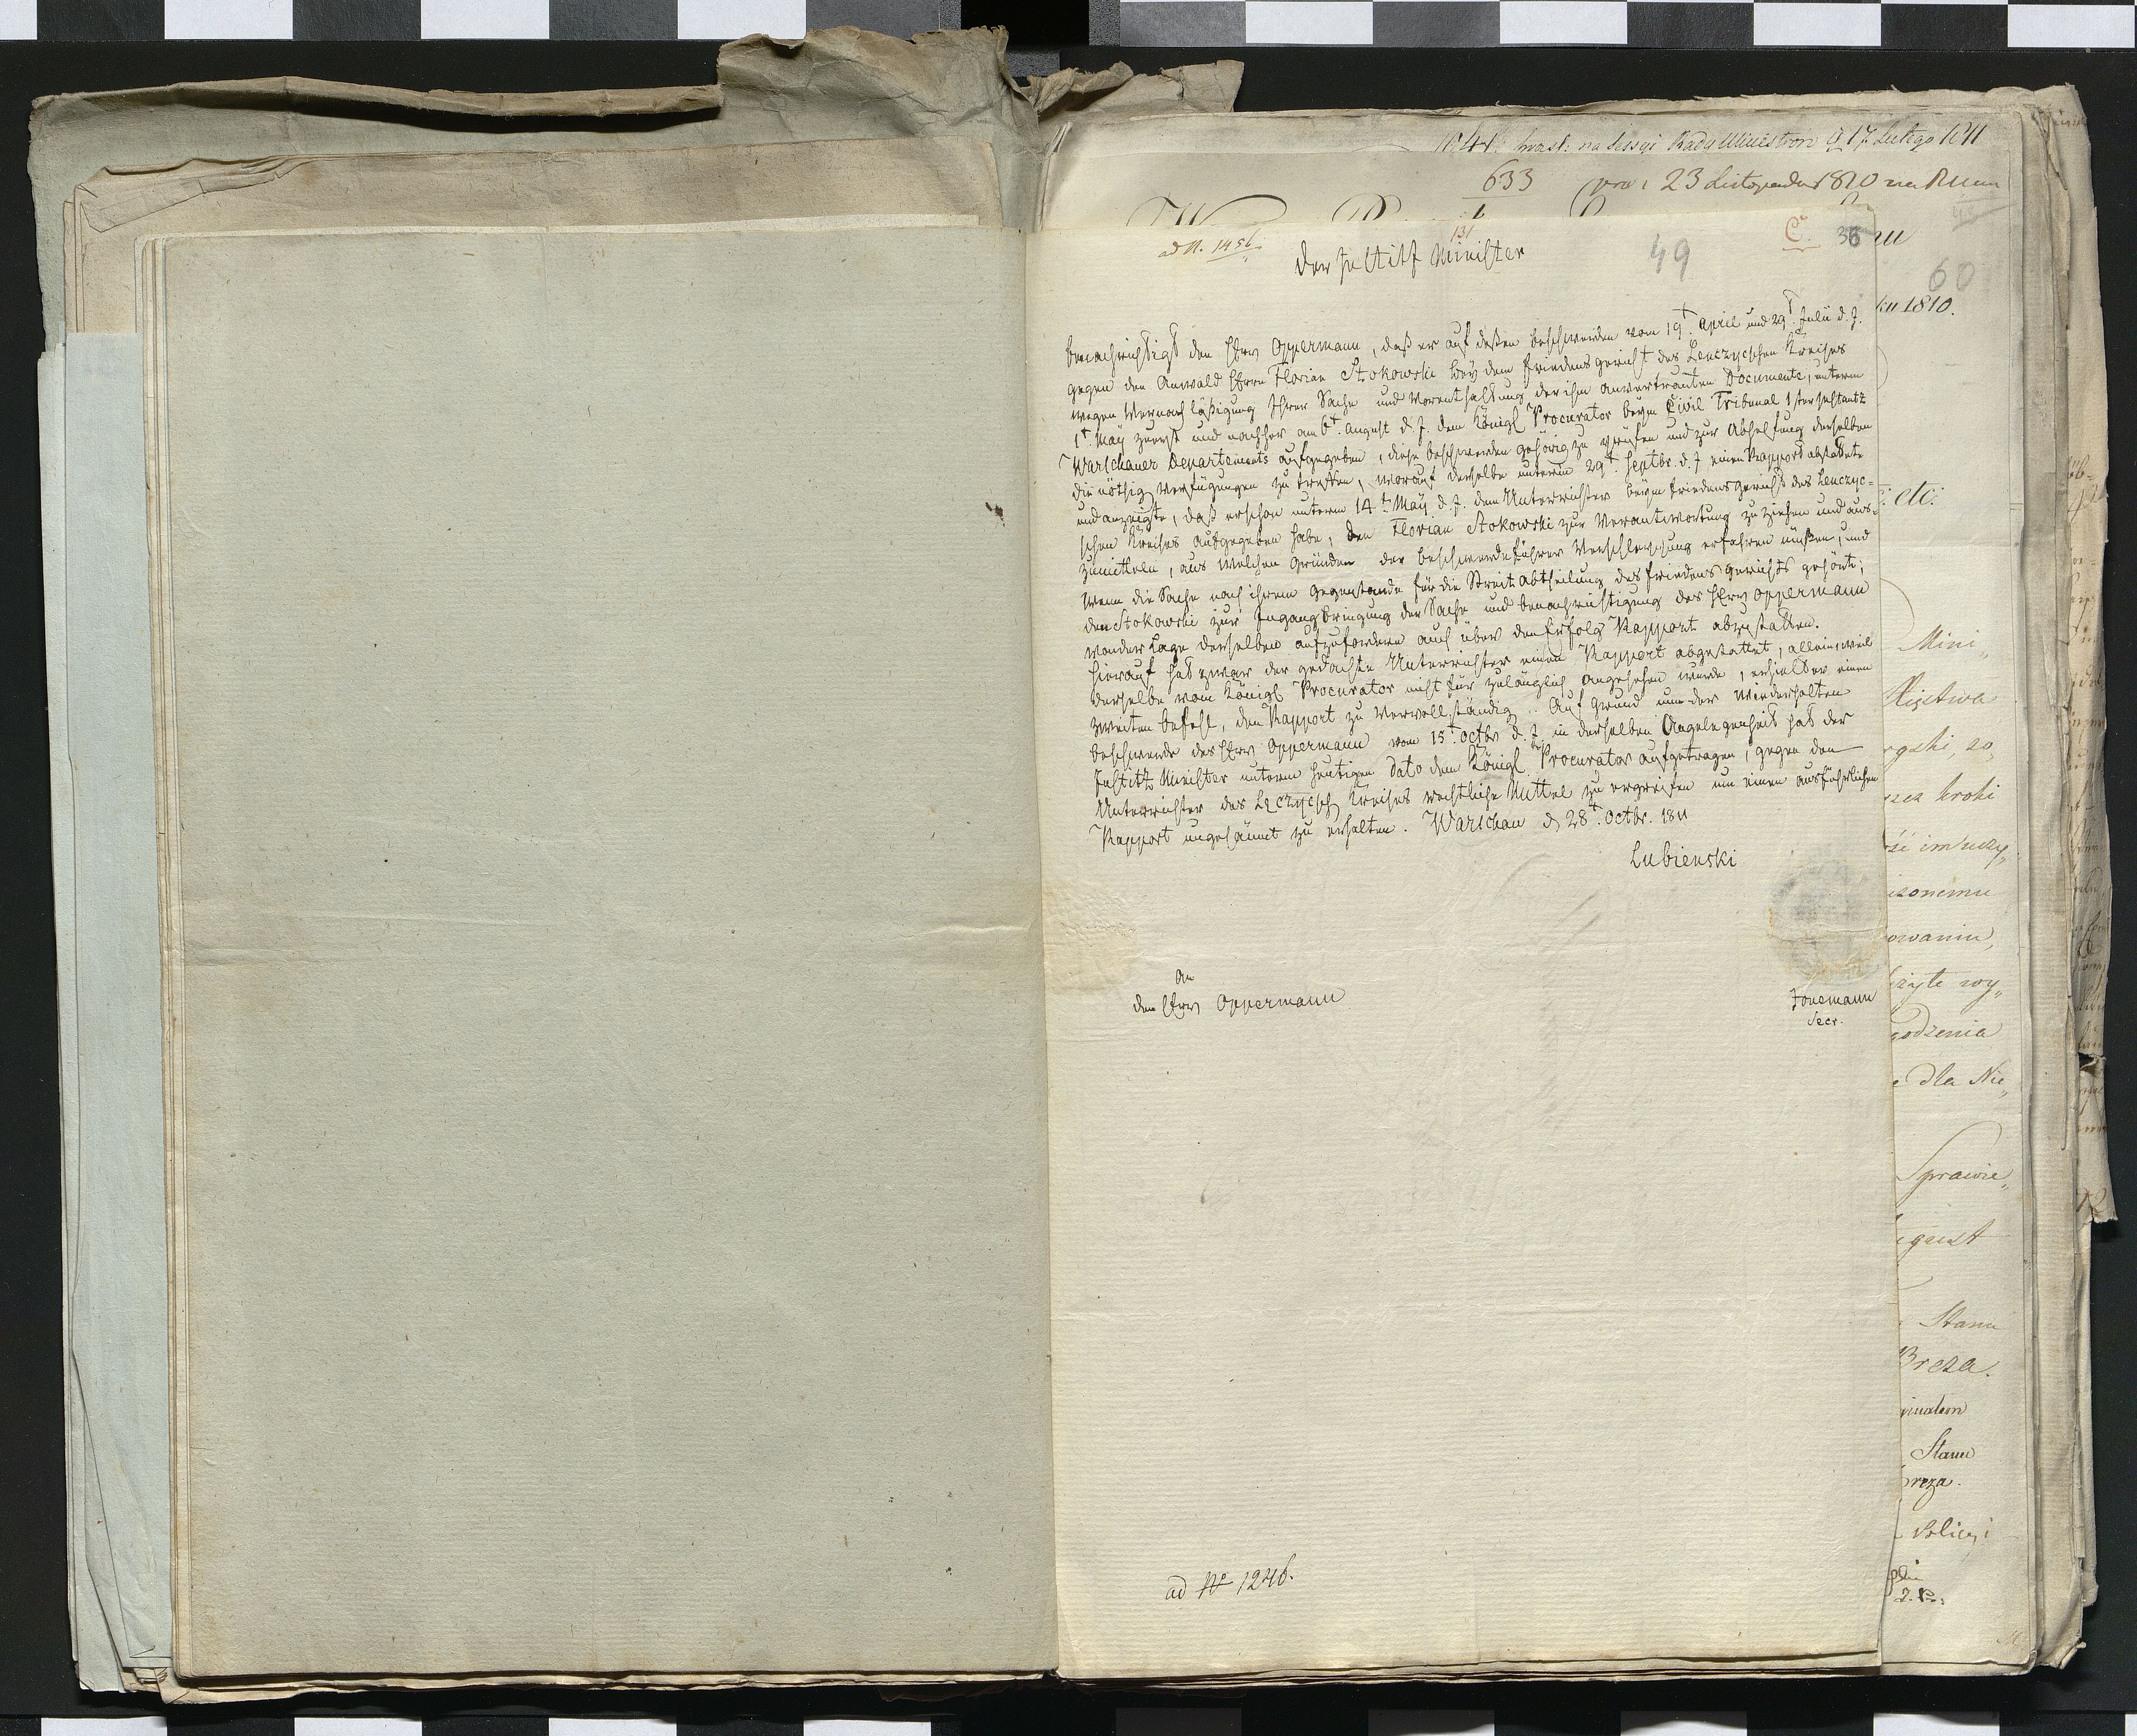 633 23 Listopada 1810
ad N. 1456.
131
C. 36
49
60
Der Justitz Minister
ku 1810.
benachrichtigt den Herrn Oppermann, daß er auf deßen Beschwerden vom 19t. April und 29t. Julii d. J.
gegen den Anwald Herrn Florian Stokowski bey dem Friedensgericht des Lenczycschen Kreises
wegen Vernachläßigung Ihrer Sache und Vorenthaltung der ihm anvertrauten Documente, unterm
1t. May zuerst und nachher am 6t. August d. J. dem Königl Procurator beym Civil Tribunal 1ster Instantz
Warschauer Departements aufgegeben, diese Beschwerden gehörig zu prüfen und zur Abhelfung derselben
die nöthig Verfügungen zu treffen, worauf derselbe unterm 29t. Septbr. d. J einen Rapport abstattete
und anzeigte, daß er schon unterm 14t. May d. J. dem Unterrichter beym Friedensgericht des Lenczyc-
schen Kreises aufgegeben habe, den Florian Stokowski zur Verantwortung zu ziehen und aus-
zumitteln, aus welchen Gründen der Beschwerdeführer Verschleppung erfahren müßen, und
wenn die Sache nach ihrem Gegenstande für die Streitabtheilung des Friedensgerichts gehört,
den Stokowski zur Ingangbringung der Sache und Benachrichtigung des Herrn Oppermann
von der Lage derselben aufzufordern auch über den Erfolg Rapport abzustatten.
Hierauf hat zwar der gedachte Unterrichter einen Rapport abgestattet, allein, weil
derselbe vom Königl Procurator nicht für zulänglich angesehen wurde, erhielt er einen
zweiten Befehl, den Rapport zu vervollständig. Auf Grund nun der wiederholten
Beschwerde des Herrn Oppermann vom 15t. Octbr d. J. in derselben Angelegenheit hat der
Justitz Minister unterm heutigen Dato dem Königl Procurator aufgetragen, gegen den
Unterrichter des Leczycsch Kreises rechtliche Mittel zu ergreifen um einen ausführlichen
Rapport ungesäumt zu erhalten. Warschau d 28t. Octbr. 1811
Lubienski
An
den Herrn Oppermann
Jonemann
Secr.
ad No 1246.
etc:
Mini„
zonemu
godzenia
dla Nie„
Sprawie„
Stanu
Breza.
Stanu
Breza.
Policyi